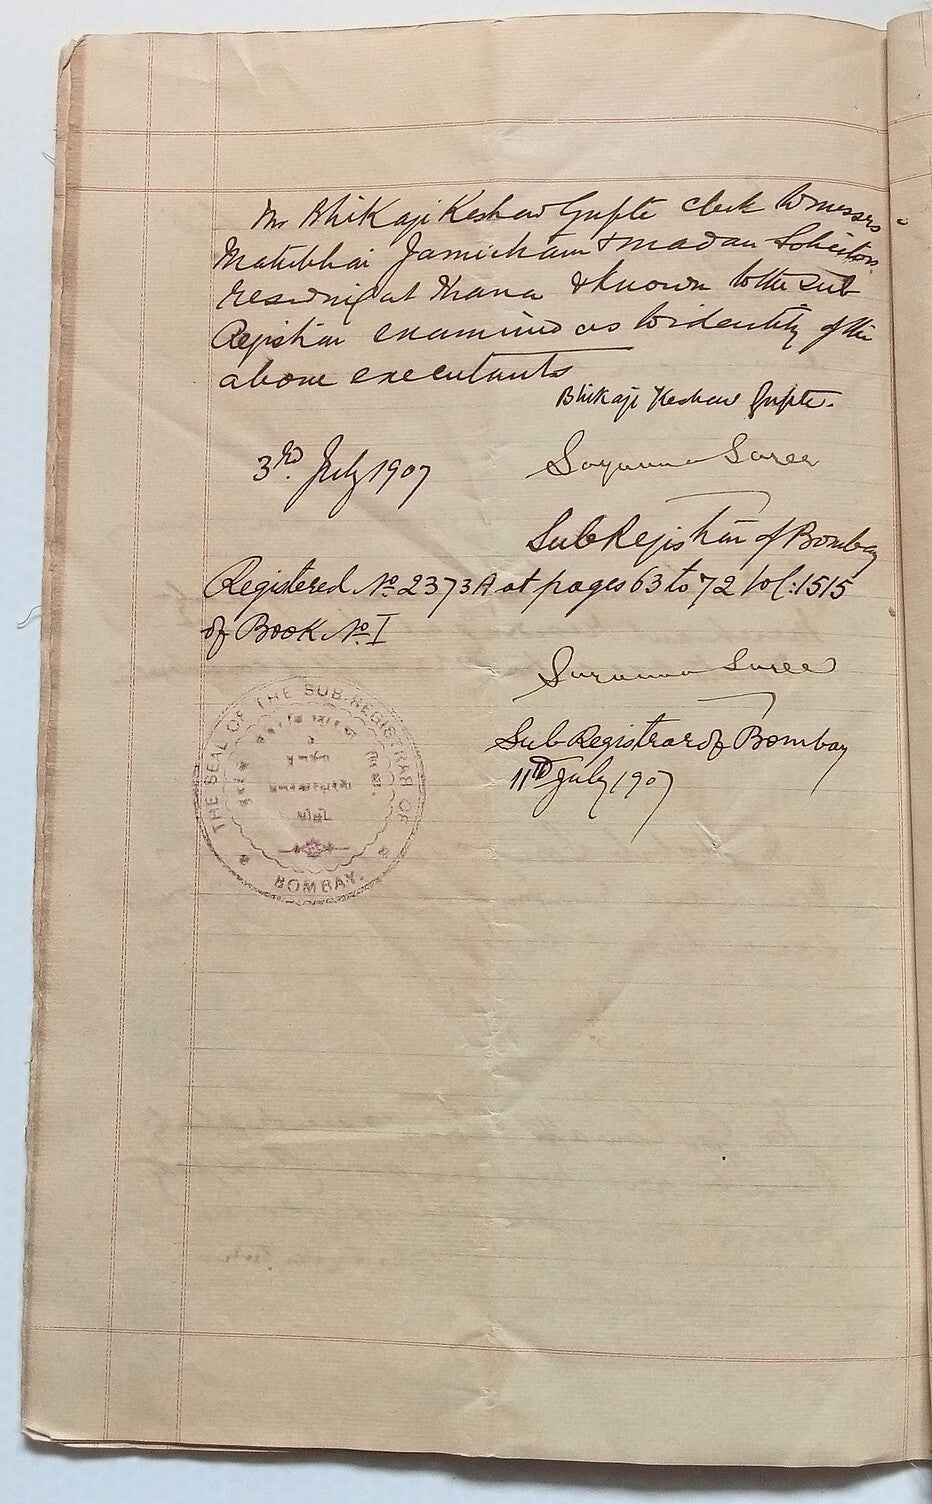 Mr Bhikaji Keshav Gupte clerk to messrs
Matubhai Jamietram & Madan Solicitors
residing at Thana & known to the Sub
Registrar examined as to identity of the
above executants
Bhikaji Keshav Gupte.
3rd. July 1907
Sub Registrar of Bombay
Registered No. 2373A at pages 63 to 72 Vol: 1515
of Book No. I
Sub Registrar of Bombay
11th July 1907
THE SEAL OF THE SUB-REGISTRAR OF
BOMBAY.